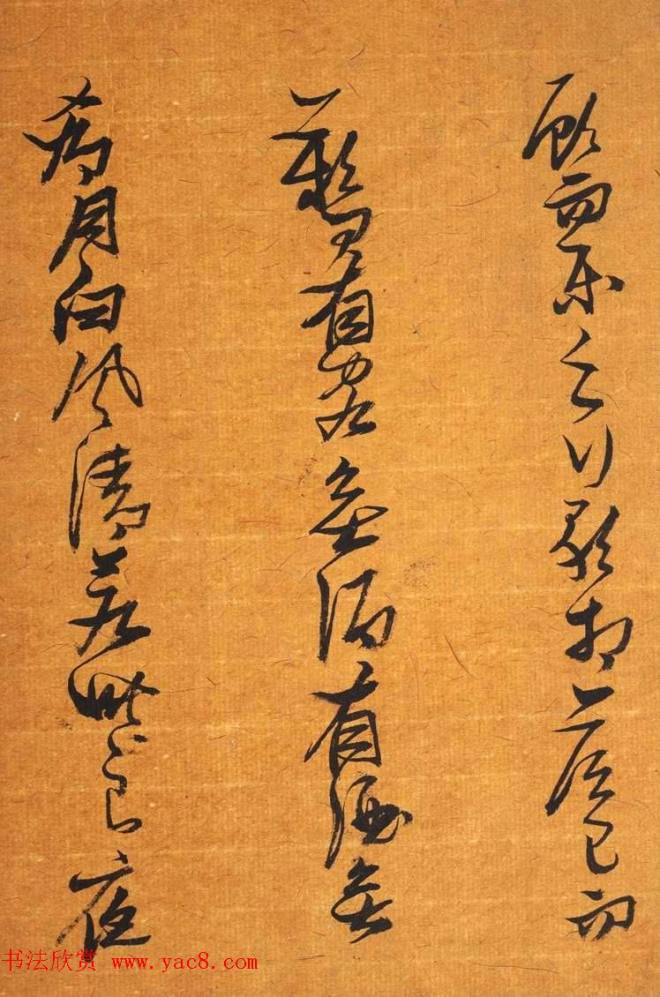 顧而樂之行歌相答已而
歎曰有客無酒有酒無
肴月白風清若此良夜
书法欣赏 www.yac8.com